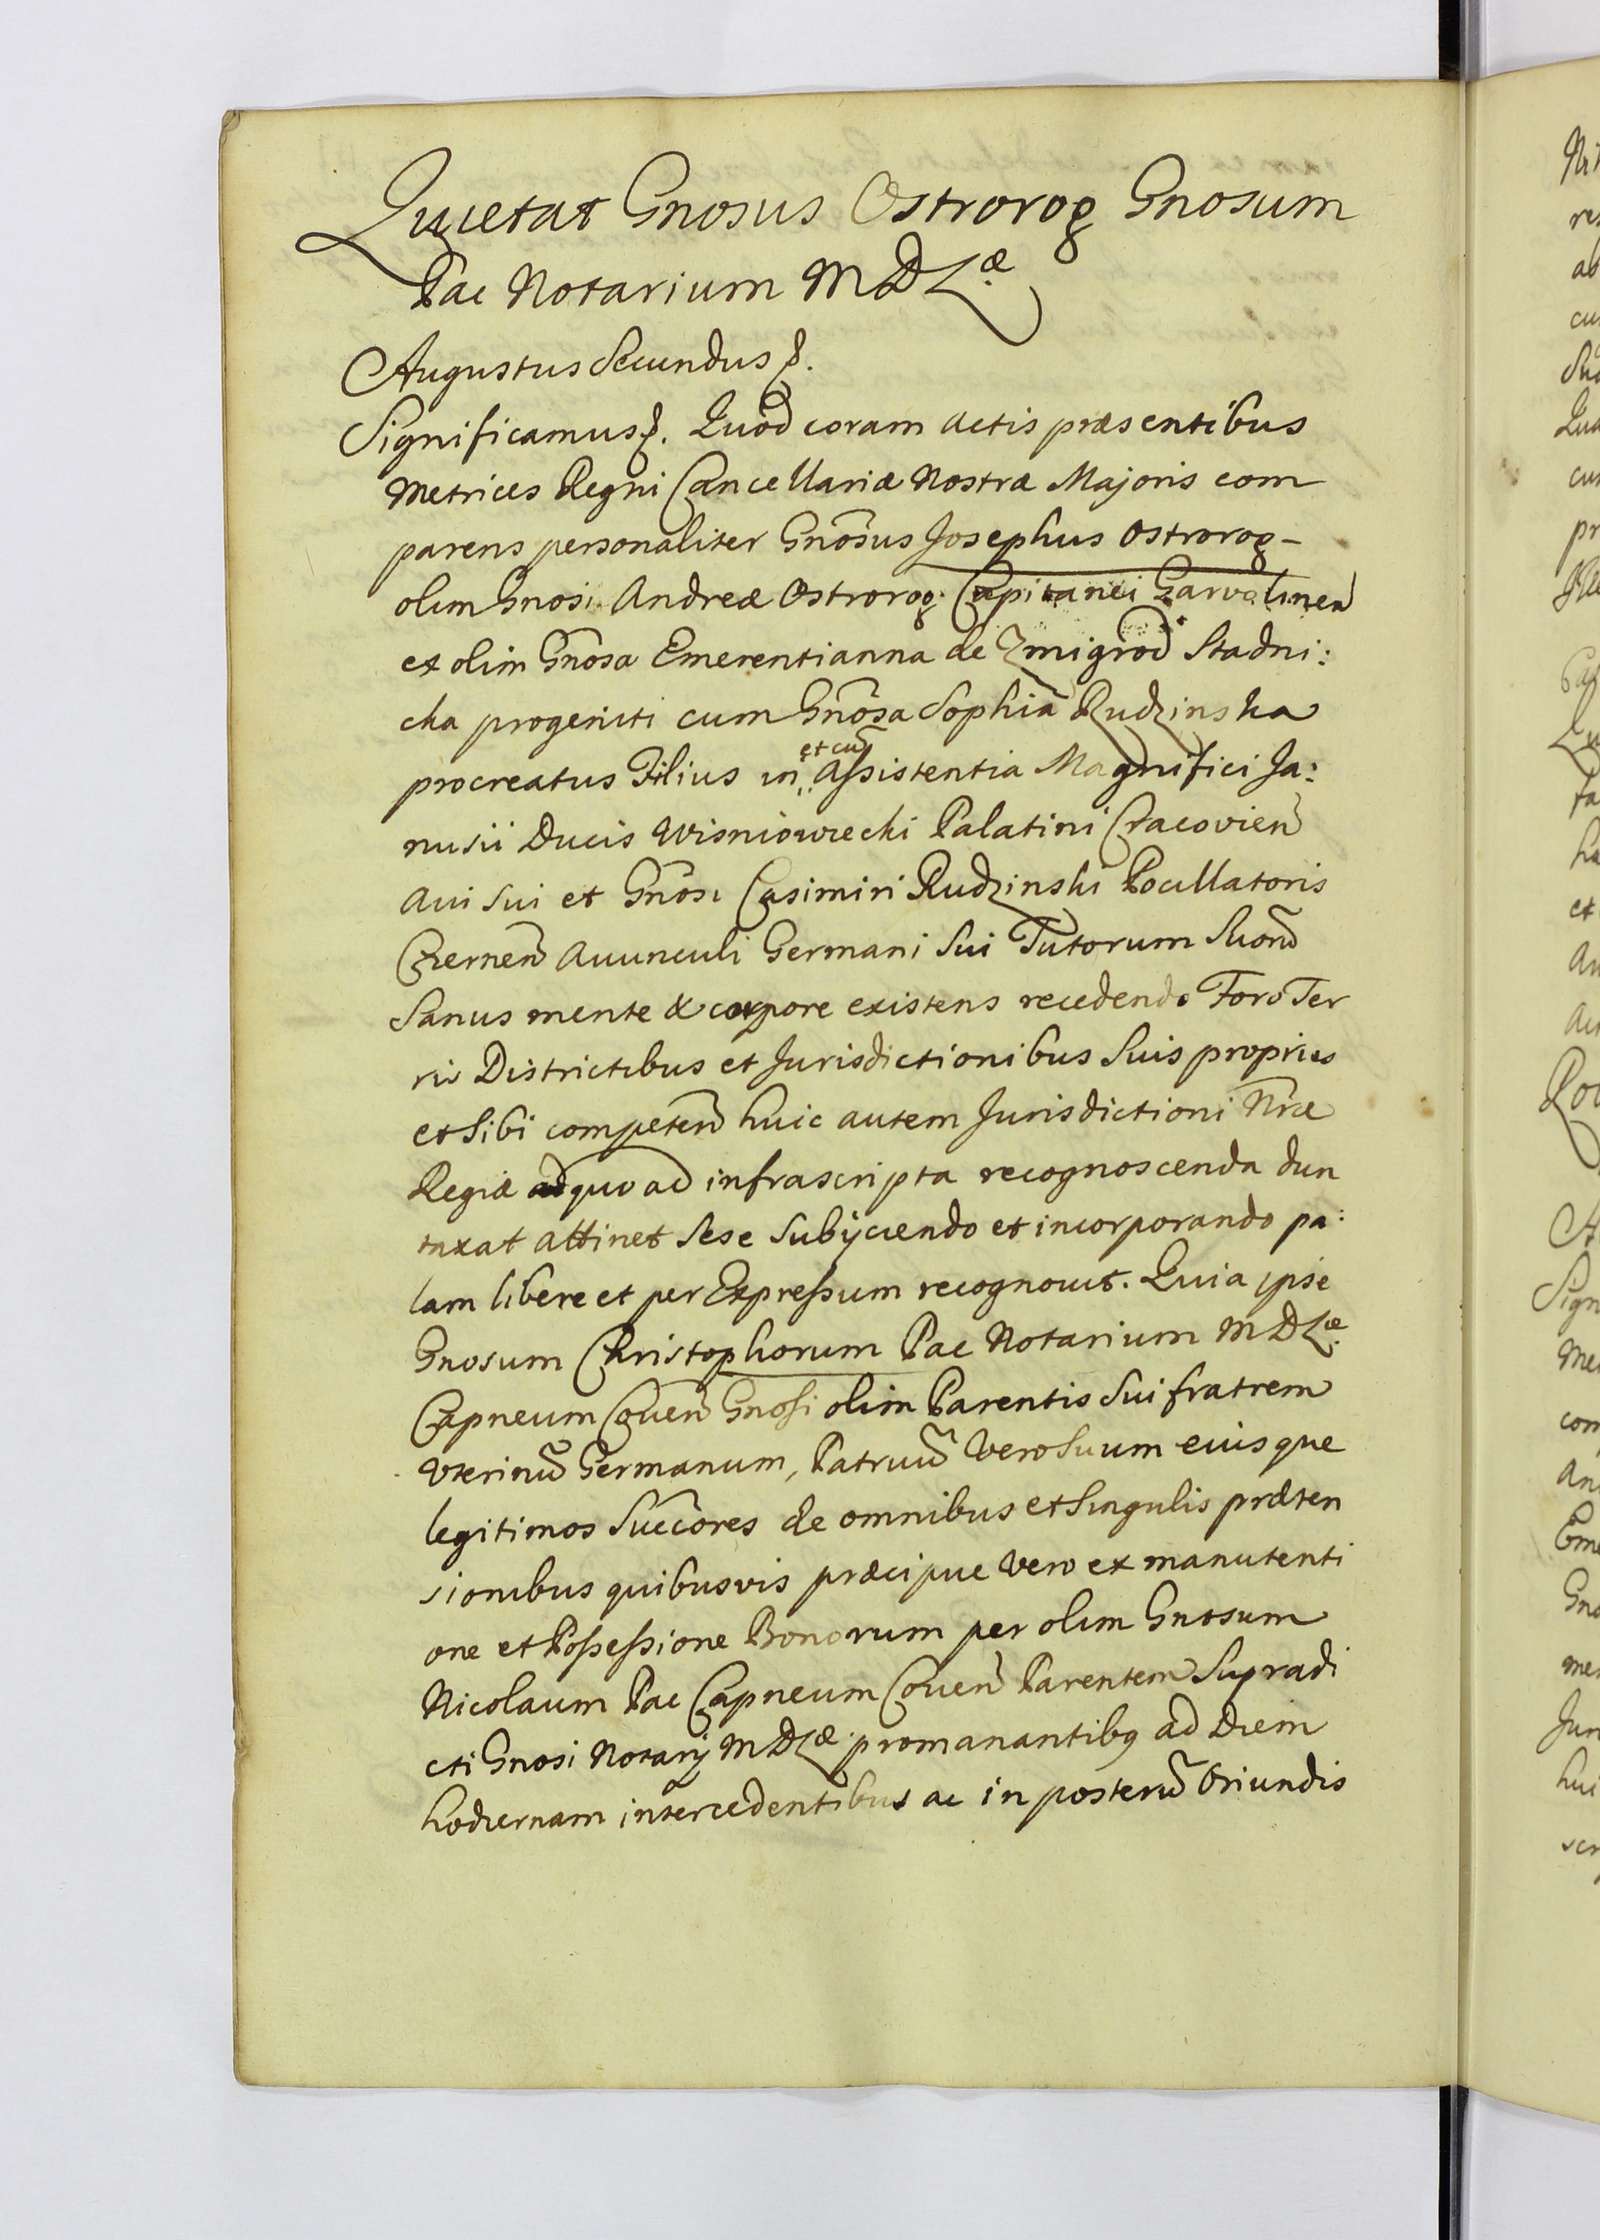 Quietat Gnosus Ostrorog Gnosum
Pac Notarium MDLæ
Augustus Secundus &.
Significamus &. Quod coram actis præsentibus
Metrices Regni Cancellariæ Nostræ Majoris com
parens personaliter Gnosus Josephus Ostrorog –
olim Gnosi Andreæ Ostrorog Capitanei Garvolinen
et olim Gnosa Emerentianna de Zmigrod Stadni:
cka progeniti cum Gnosa Sophia Rudzinska
procreatus Filius in et cu Assistentia Magnifici Ja:
nusii Ducis Wisniowiecki Palatini Cracovien
Aui Sui et Gnosi Casimiri Rudzinski Pocillatoris
Czernen Auunculi Germani Sui Tutorum Suoru
Sanus mente & corpore existens recedendo Foro Ter
ris Districtibus et Jurisdictionibus Suis proprios
et Sibi competen huic autem Jurisdictioni Nræ
Regiæ ad quo ad infrascripta recognoscenda dun
taxat attinet Sese Subijciendo et incorporando pa:
lam libere et per Expressum recognouit. Quia ipse
Gnosum Christophorum Pac Notarium MDLæ
Capneum Couen Gnosi olim Parentis Sui fratrem
Vterinu Germanum, Patruu Vero Suum eiusque
legitimos Succores de omnibus et Singulis præten
sionibus quibusvis præcipue Vero ex manutenti
one et Possessione Bonorum per olim Gnosum
Nicolaum Pac Capneum Couen Parentem Supradi
cti Gnosi Notarij MDLæ promanantibq ad Diem
hodiernam intercedentibus ac in posteru Oriundis